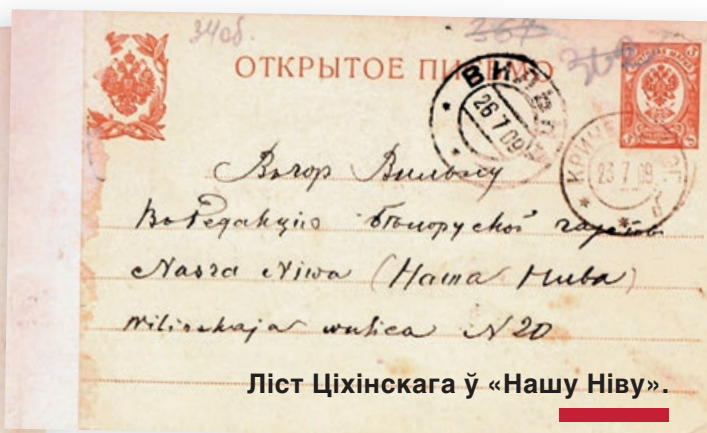 34об.
ОТКРЫТОЕ ПИСЬМО
ВИЛЬНА
26 7 09
23 7 09
Въ гор Вильну
Въ Редакцію бѣлоруской газеты
Nasza Niwa (Наша Нива)
Wilinskaja wulica N 20
Ліст Ціхінскага ў «Нашу Ніву».